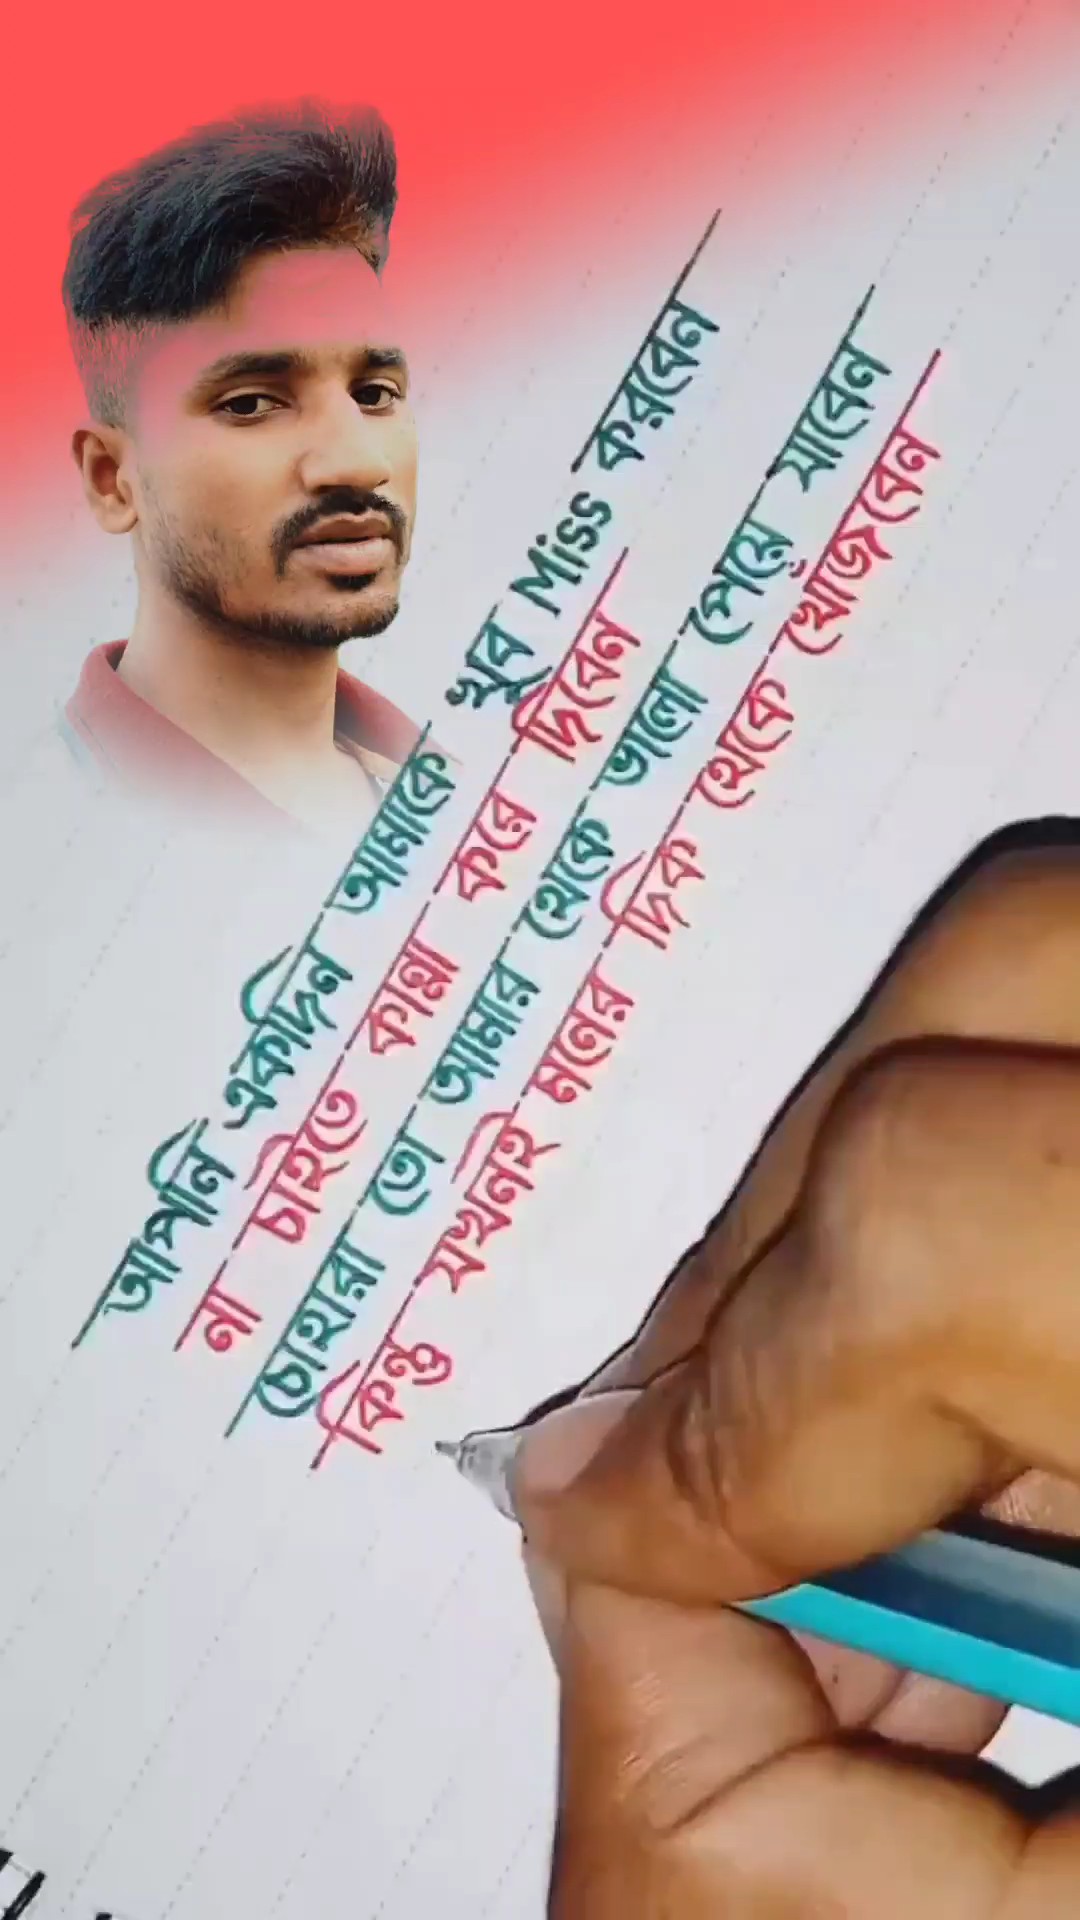 আপনি একদিন আমাকে খুব Miss করবেন
না চাইতে কান্না করে দিবেন
চেহারা তো আমার থেকে ভালো পেয়ে যাবেন
কিন্তু যখনই মনের দিক থেকে খোঁজবেন